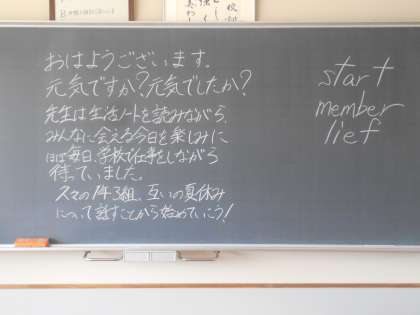 おはようございます。
元気ですか?元気でしたか?
先生は生活ノートを読みながら、
みんなに会える今日を楽しみに
ほぼ毎日、学校で仕事をしながら
待っていました。
互いの夏休み
について話すことから始めていこう!
start
member
lief